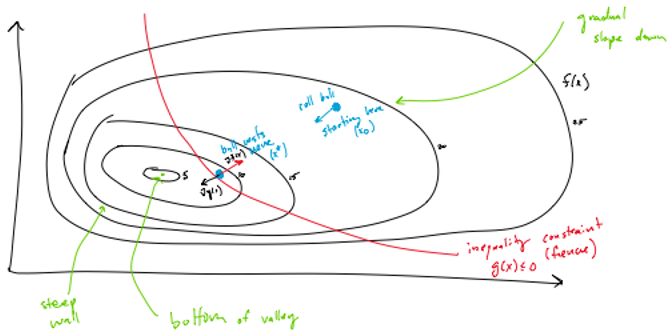 gradual
slope down
f(x)
25
roll ball
starting here
(x0)
20
ball rests
here
(x*)
∇f(x)
∇g(x)
10
15
5
inequality constraint
g(x)≤0 (fence)
steep
wall
bottom of valley